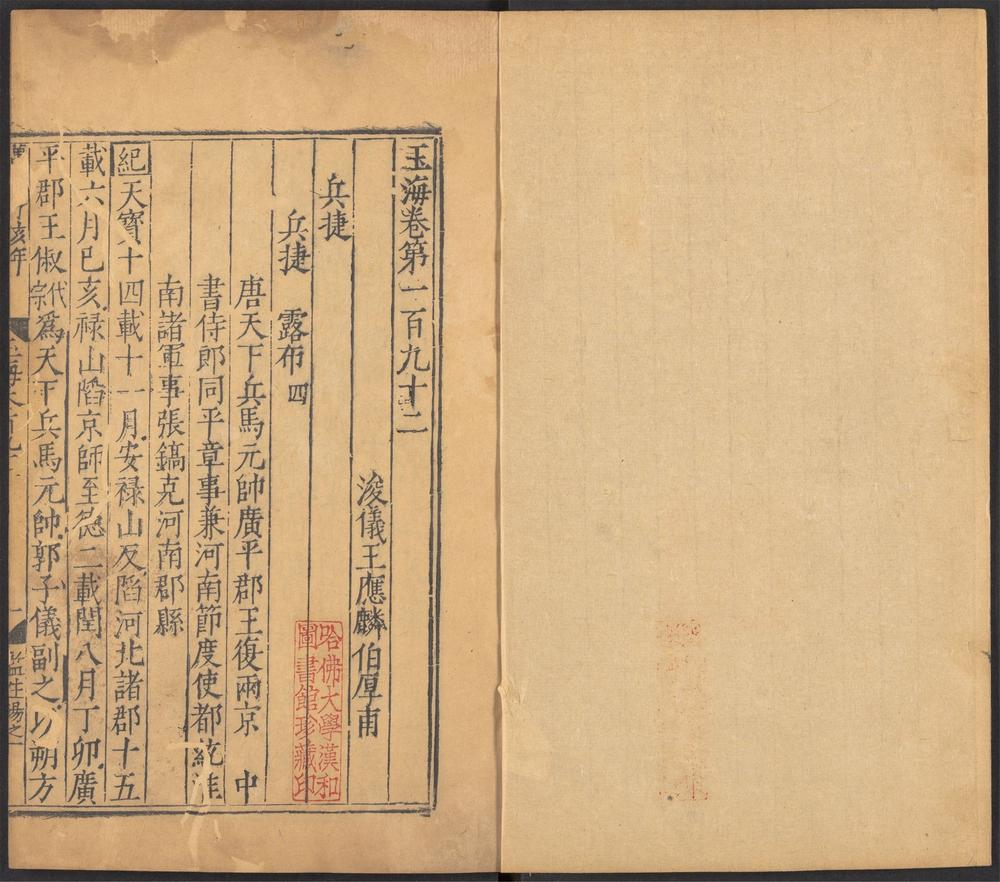 玉海卷第一百九十二
浚儀王應麟伯厚甫
兵捷
兵捷　露布四
唐天下兵馬元帥廣平郡王復兩京　中
書侍郎同平章事兼河南節度使都統淮
南諸軍事張鎬克河南郡縣
紀天寶十四載十一月安祿山反陷河北諸郡十五
載六月己亥祿山陷京師至德二載閏八月丁卯廣
平郡王俶代宗爲天下兵馬元帥郭子儀副之以朔方
亥年
監生楊之
哈佛大學漢和
圖書館珍藏印